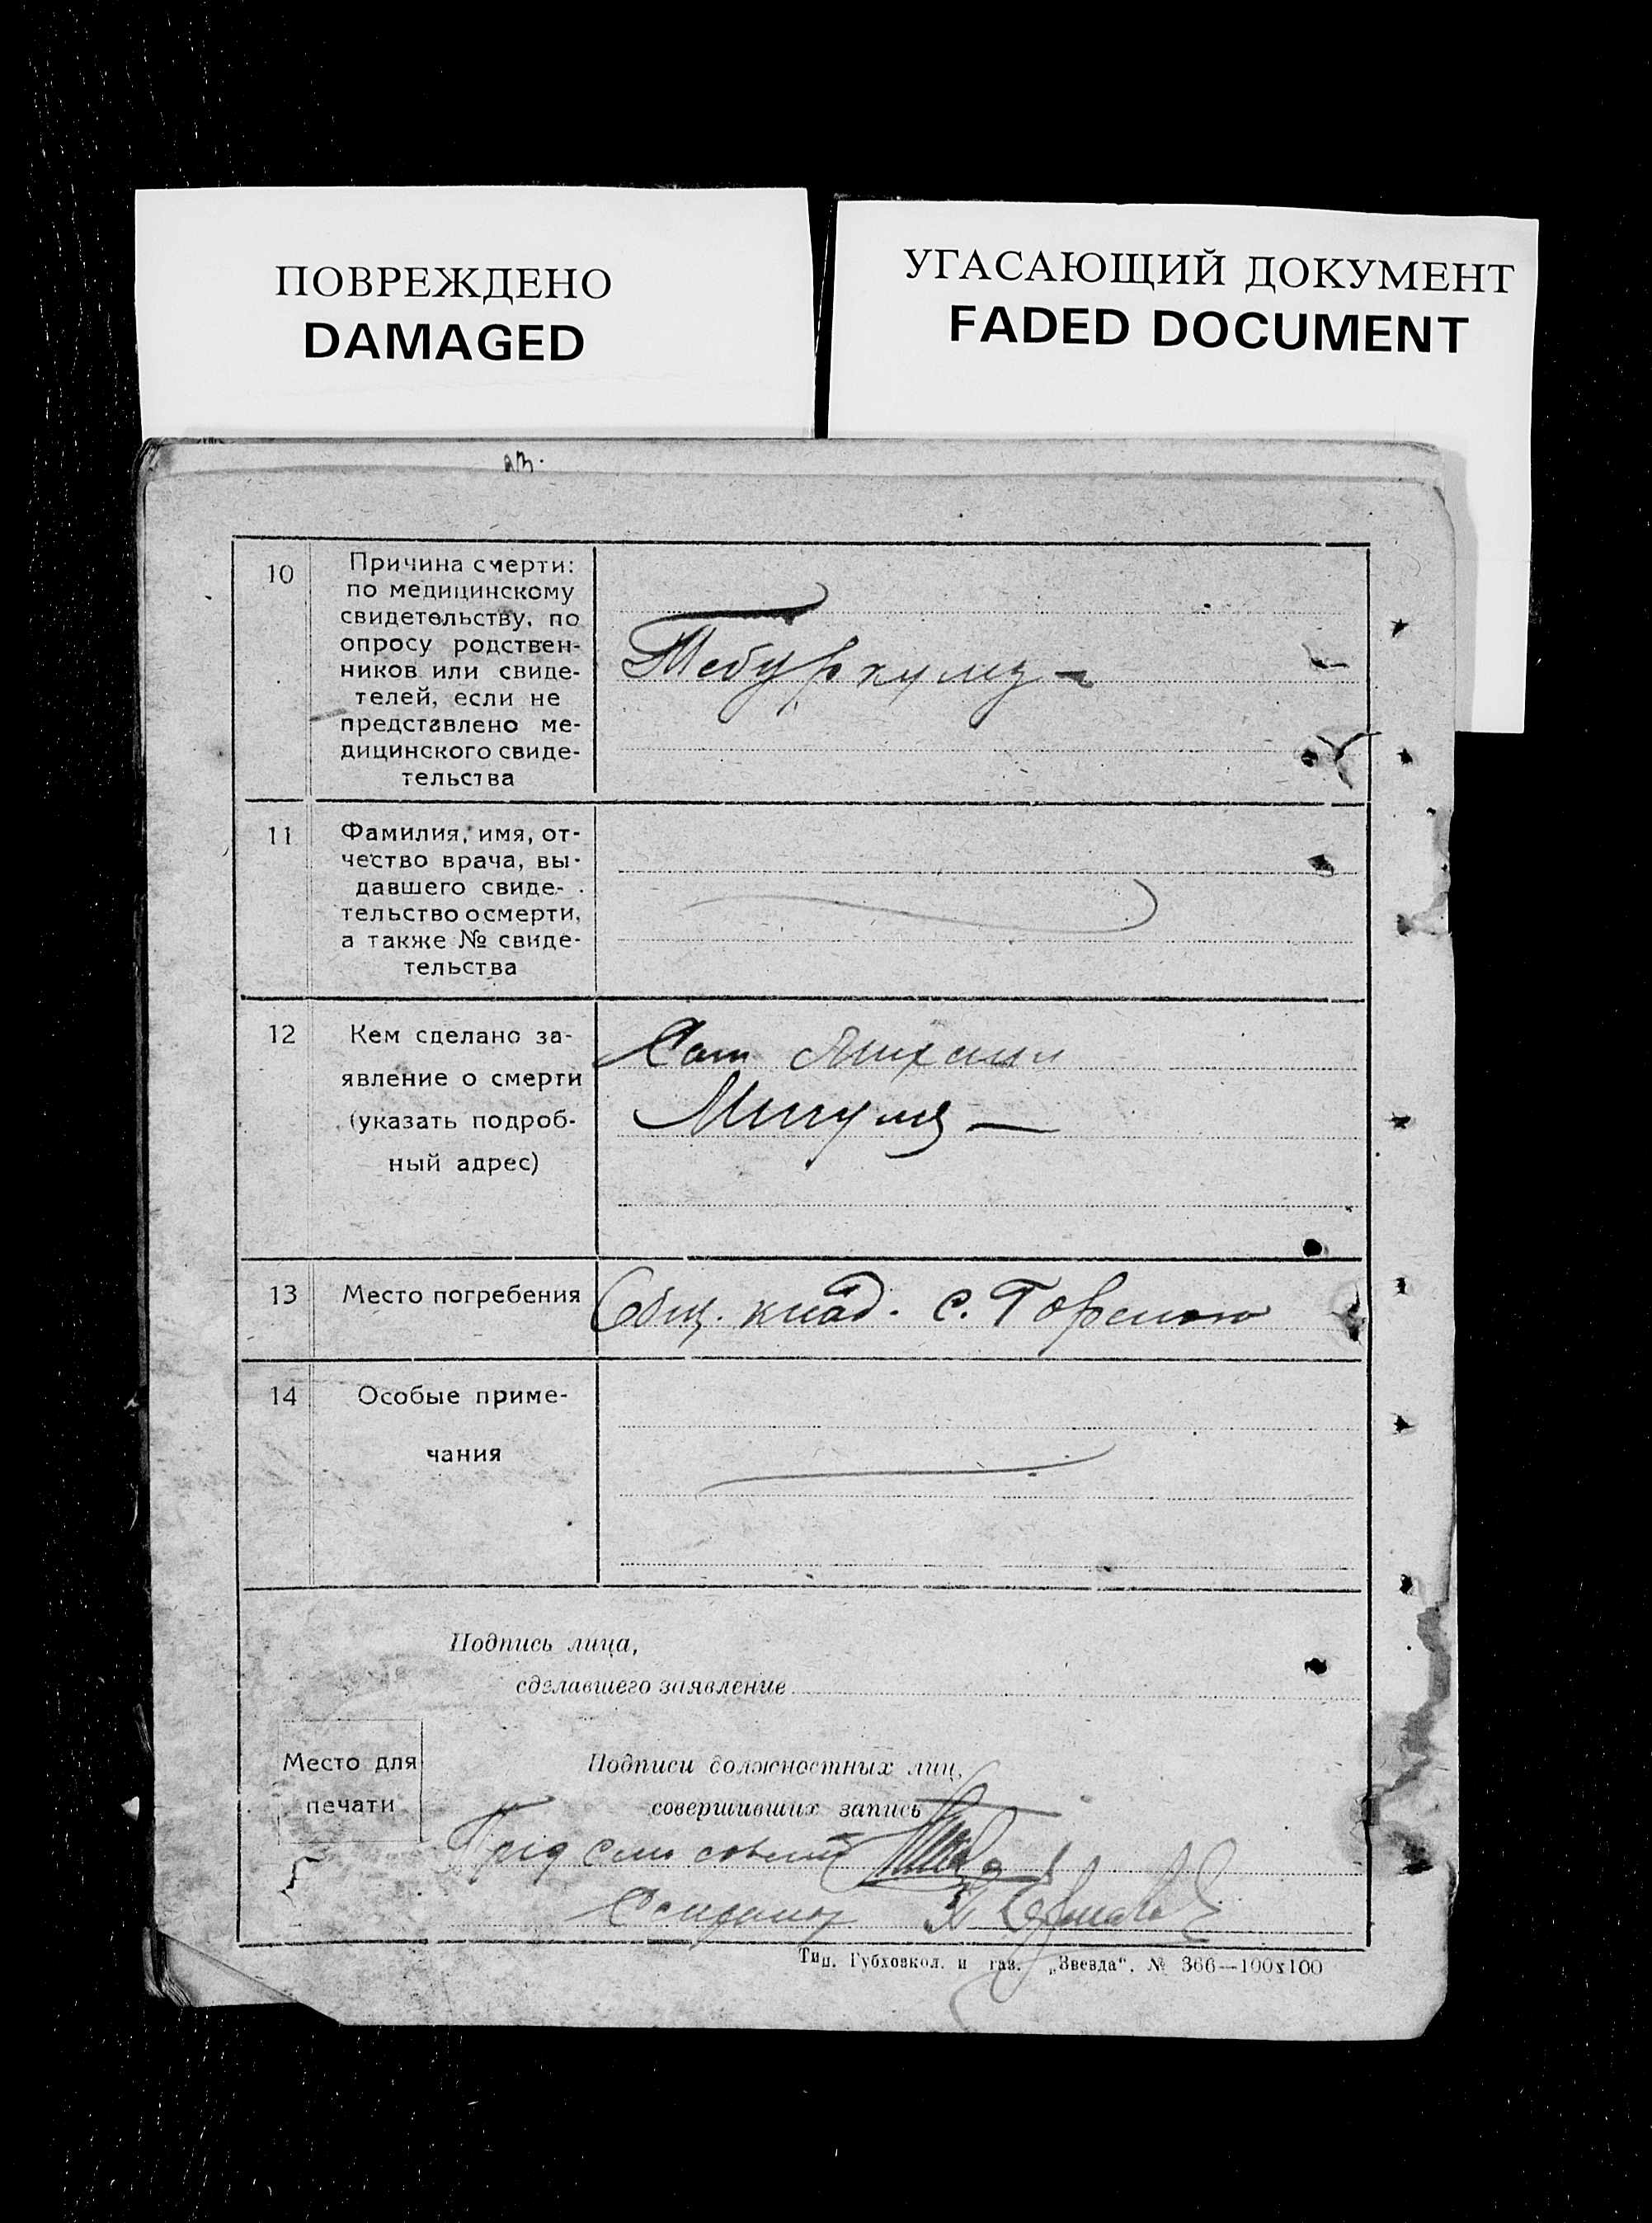 ПОВРЕЖДЕНО
DAMAGED
УГАСАЮЩИЙ ДОКУМЕНТ
FADED DOCUMENT
10
Причина смерти:
по медицинскому
свидетельству, по
опросу родствен-
ников или свиде-
телей, если не
представлено ме-
дицинского свиде-
тельства
Тебуркулез
11
Фамилия, имя, от-
чество врача, вы-
давшего свиде-
тельство о смерти,
а также № свиде-
тельства
12
Кем сделано за-
явление о смерти
(указать подроб-
ный адрес)
13
Место погребения
Общ. клад. с. Горского
14
Особые приме-
чания
Подпись лица,
сделавшего заявление
Место для
печати
Подписи должностных лиц,
совершивших запись
Пред сель совета
Секретар
Тип. Губхозкол. и газ. „Звезда“. № 366—100х100